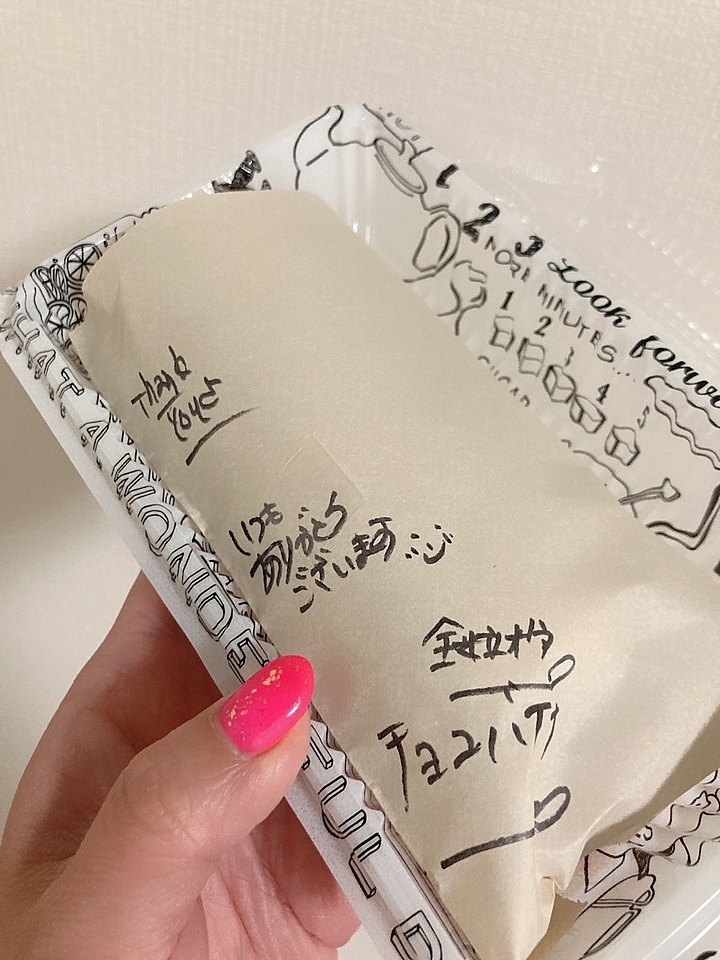 Thank
you♪
いつも
ありがとう
ございます
全粒粉
1 2 3 Look forw
MORE MINUTES...
1 2 3 4 5
SUGAR
HAT A WONDERFUL D